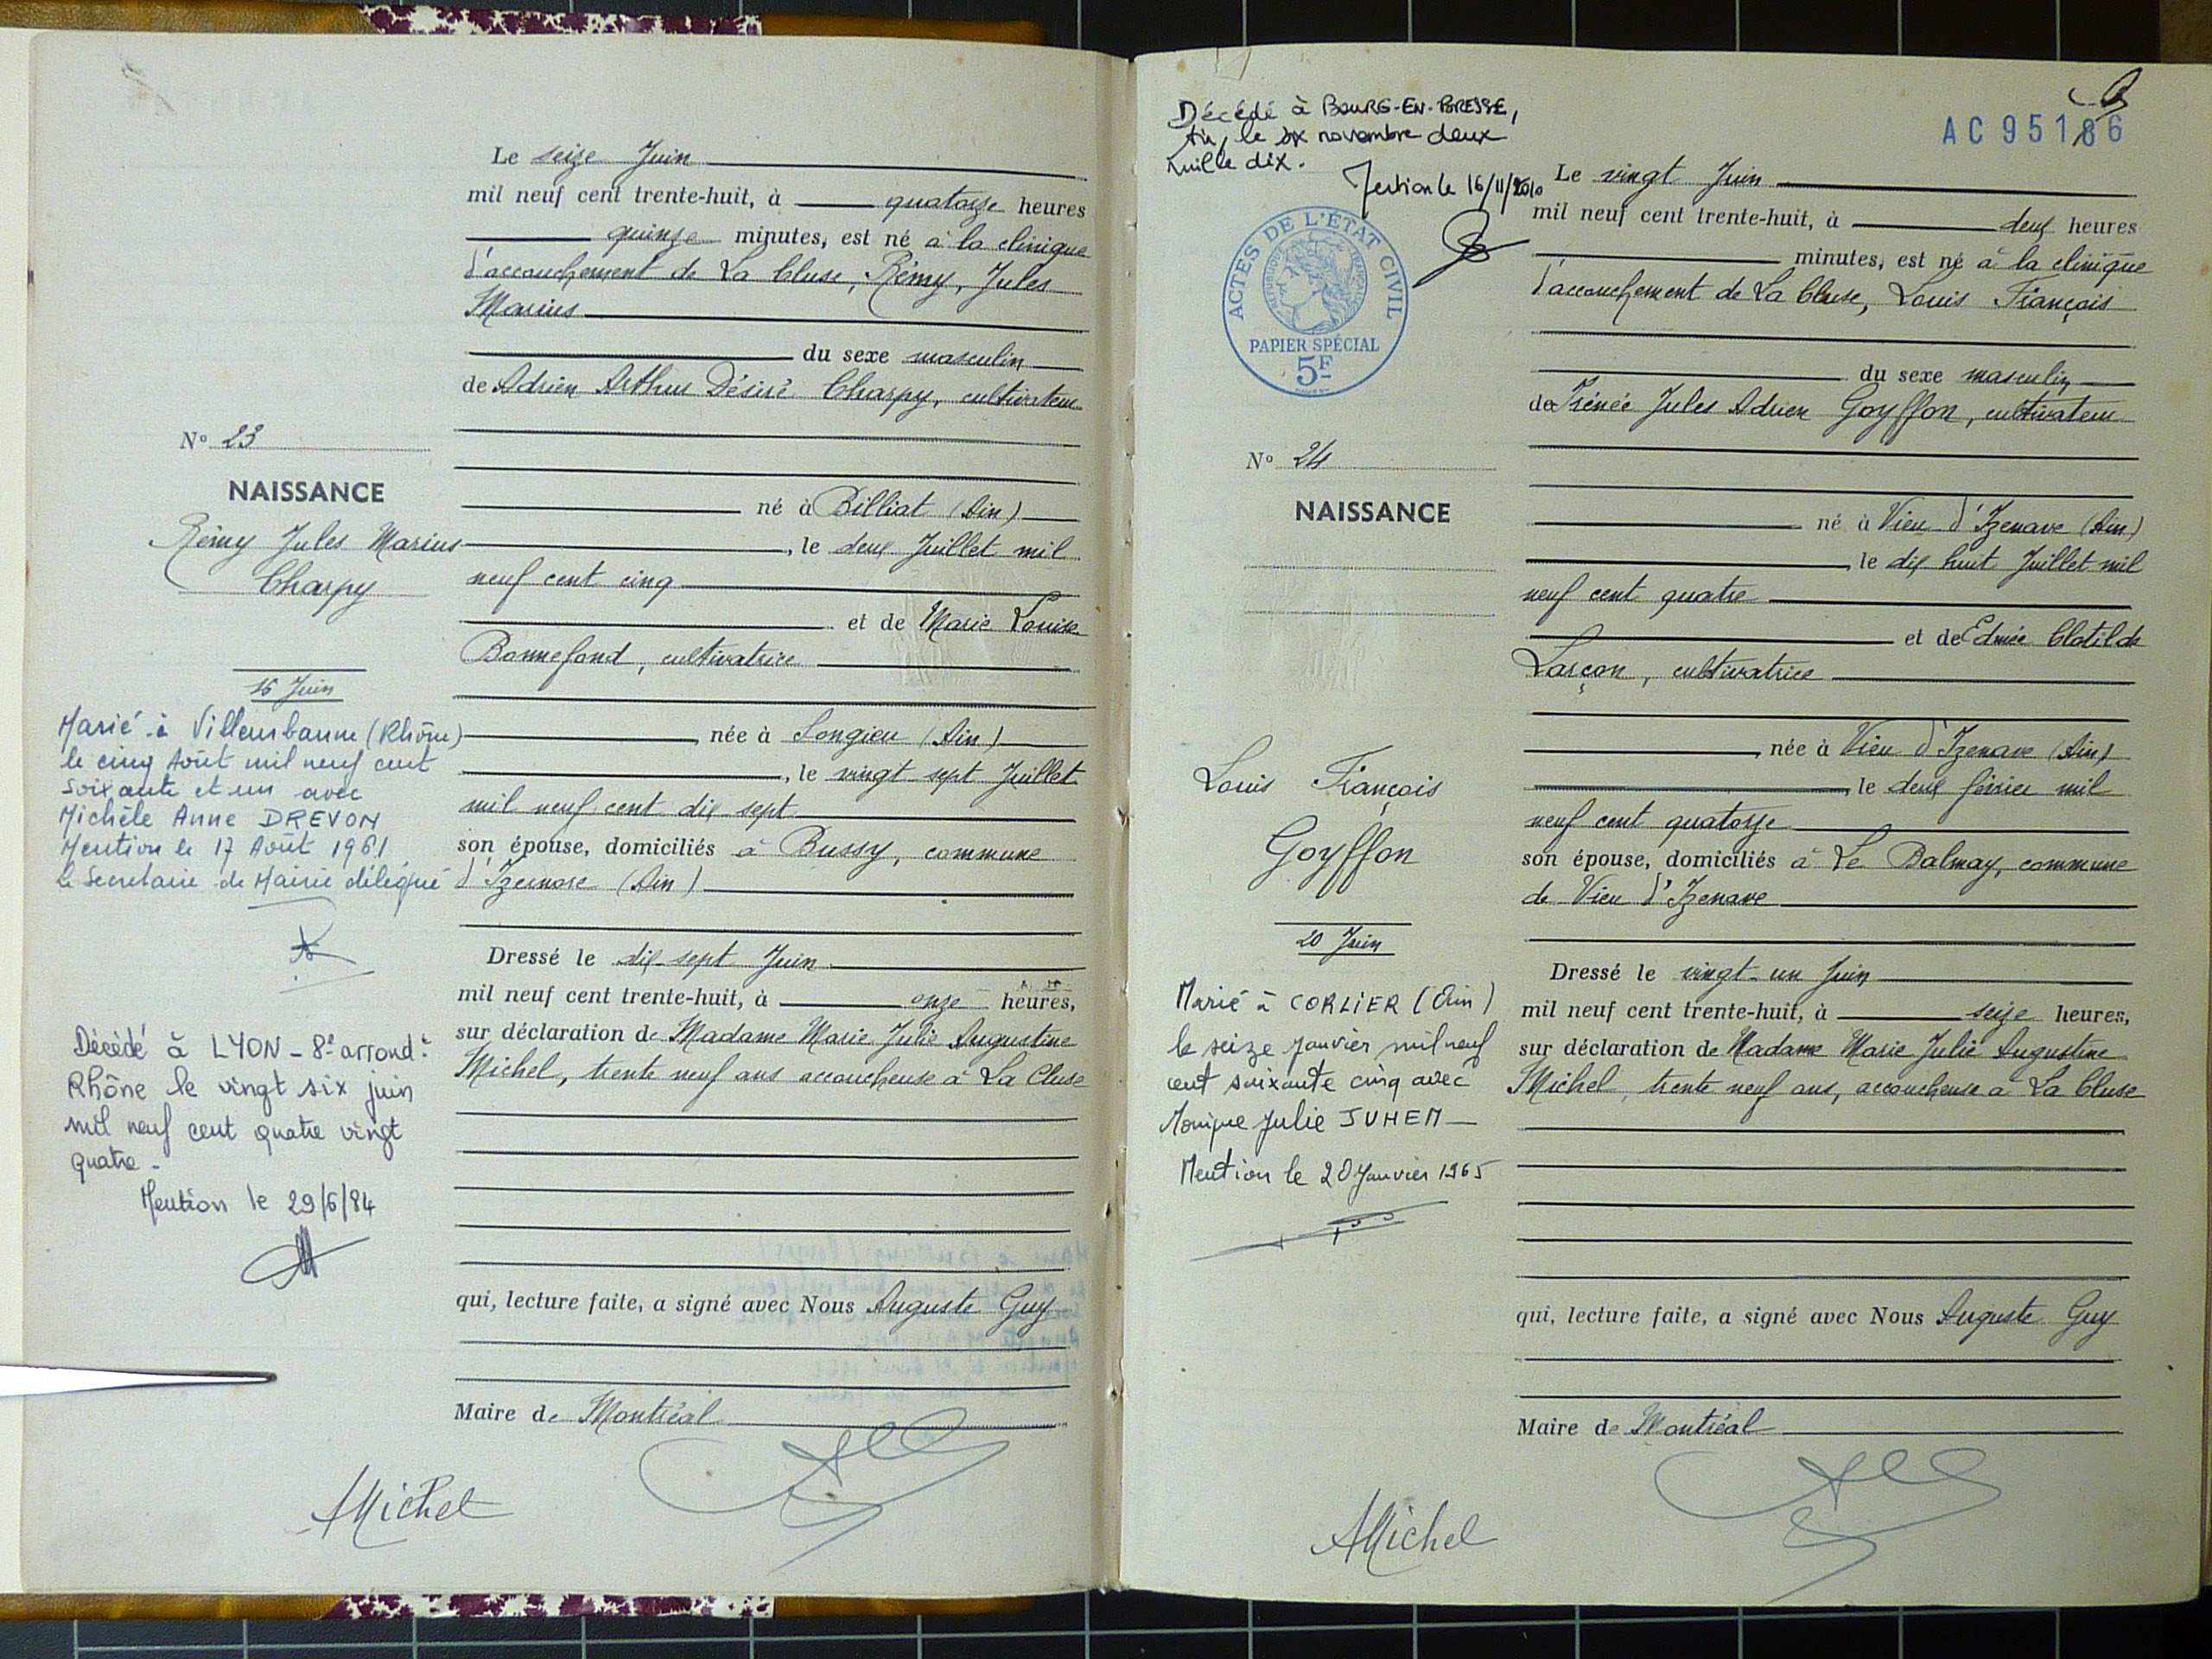 Le seize Juin
mil neuf cent trente-huit, à quatorze heures
quinze minutes, est né à la clinique
d'accouchement de La Cluse, Rémy, Jules
Marius
du sexe masculin
de Adrien Arthur Désiré Charpy, cultivateur
né à Billiat (Ain)
, le deux Juillet mil
neuf cent cinq
et de Marie Louise
Bonnefond, cultivatrice
née à Songieu (Ain)
, le vingt sept Juillet
mil neuf cent dix sept
son épouse, domiciliés à Bussy, commune
d'Izernore (Ain)
Dressé le dix-sept Juin
mil neuf cent trente-huit, à onze heures,
sur déclaration de Madame Marie Julie Augustine
Michel, trente neuf ans accoucheuse à La Cluse
qui, lecture faite, a signé avec Nous Auguste Guy
Maire de Montréal
AMichel
N° 23
NAISSANCE
Rémy Jules Marius
Charpy
16 Juin
Marié à Villeurbanne (Rhône)
le cinq Août mil neuf cent
soixante et un avec
Michèle Anne DREVON
Mention le 17 Août 1961
le Secrétaire de Mairie délégué
Décédé à LYON - 8e arrondt
Rhône le vingt six juin
mil neuf cent quatre vingt
quatre -
Mention le 29/6/84
Décédé à BOURG-EN-BRESSE,
Ain, le novembre deux
mille dix.
Mention le 16/11/2010
ACTES DE L'ÉTAT CIVIL
RÉPUBLIQUE FRANÇAISE
PAPIER SPÉCIAL
5F
AC 95186
Le vingt Juin
mil neuf cent trente-huit, à deux heures
minutes, est né à la clinique
d'accouchement de La Cluse, Louis François
du sexe masculin
de Irénée Jules Adrien Goyffon, cultivateur
né à Vieu d'Izenave (Ain)
, le dix huit Juillet mil
neuf cent quatre
et de Edmée Clotilde
Larçon, cultivatrice
née à Vieu d'Izenave (Ain)
, le deux février mil
neuf cent quatorze
son épouse, domiciliés à Le Balmay, commune
de Vieu d'Izenave
Dressé le vingt-un Juin
mil neuf cent trente-huit, à seize heures,
sur déclaration de Madame Marie Julie Augustine
Michel, trente neuf ans, accoucheuse à La Cluse
qui, lecture faite, a signé avec Nous Auguste Guy
Maire de Montréal
AMichel
N° 24
NAISSANCE
Louis François
Goyffon
20 Juin
Marié à CORLIER (Ain)
le seize Janvier mil neuf
cent soixante cinq avec
Monique Julie JUHEM
Mention le 20 Janvier 1965